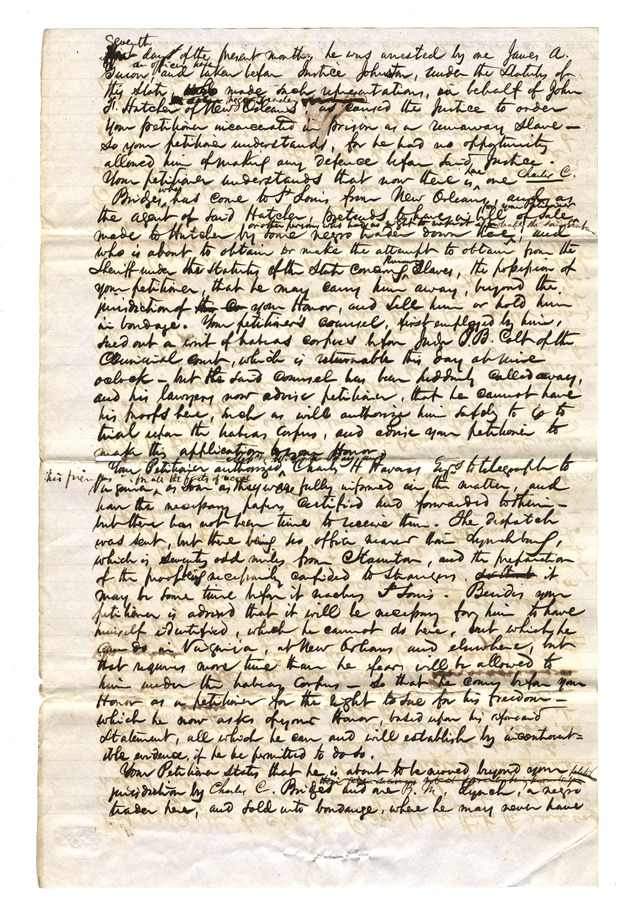 Seventh
day of the present month, he was arrested by one James A.
an officer here
and taken before Justice Johnston, under the Statutes of
this State made such representations, in behalf of John
F. Hatcher of New Orleans as caused the Justice to order
Your petitioner incarcerated in prison as a runaway slave —
so your petitioner understands, for he had no opportunity
allowed him of making any defence before said Justice.
Your petitioner understands that now there is one Charles C.
Bridges who has come to St Louis from New Orleans, and as
the agent of said Hatcher, pretends to have a bill of sale
made to Hatcher by some negro trader down there, and
who is about to obtain or make the attempt to obtain from the
Sheriff under the Statutes of the State concerning Runaway Slaves, the possession of
your petitioner, that he may carry him away, beyond the
jurisdiction of your Honor, and sell him or hold him
in bondage. Your petitioner's counsel, first employed by him,
sued out a writ of habeas corpus before Judge P. B. Colt of the
Criminal Court, which is returnable this day at nine
oclock — but the said counsel has been suddenly called away,
and his lawyers now advise petitioner, that he cannot have
his proofs here, such as will authorize him safely to go to
trial upon the habeas corpus, and advise your petitioner to
make this application to your Honor
Your Petitioner authorized Charles H. Esqr to telegraph to
his friends
Virginia, as soon as they were fully informed in the matter, and
have the necessary papers certified and forwarded to them —
but there has not been time to receive them. The dispatch
was sent, but there being no office nearer than Lynchburg,
which is seventy odd miles from Staunton, and the preparation
of the proof being necessarily confided to strangers, it
may be some time before it reaches St Louis. Besides your
petitioner is advised that it will be necessary for him to have
himself identified, which he cannot do here, but which he
can do, in Virginia, at New Orleans and elsewhere, but
that requires more time than he fears will be allowed to
him under the habeas corpus — so that he comes before your
Honor as a petitioner for the right to sue for his freedom —
which he now asks of your Honor, based upon his aforesaid
statement, all which he can and will establish by incontrovert=
ible evidence, if he be permitted to do so.
Your Petitioner states that he is about to be moved beyond your
jurisdiction by Charles C. Bridges and one B. M. Lynch, a negro
trader here, and sold into bondage, where he may never have